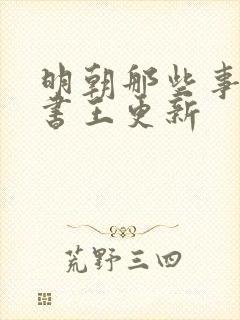 明朝那些事
书王更新
荒野三四